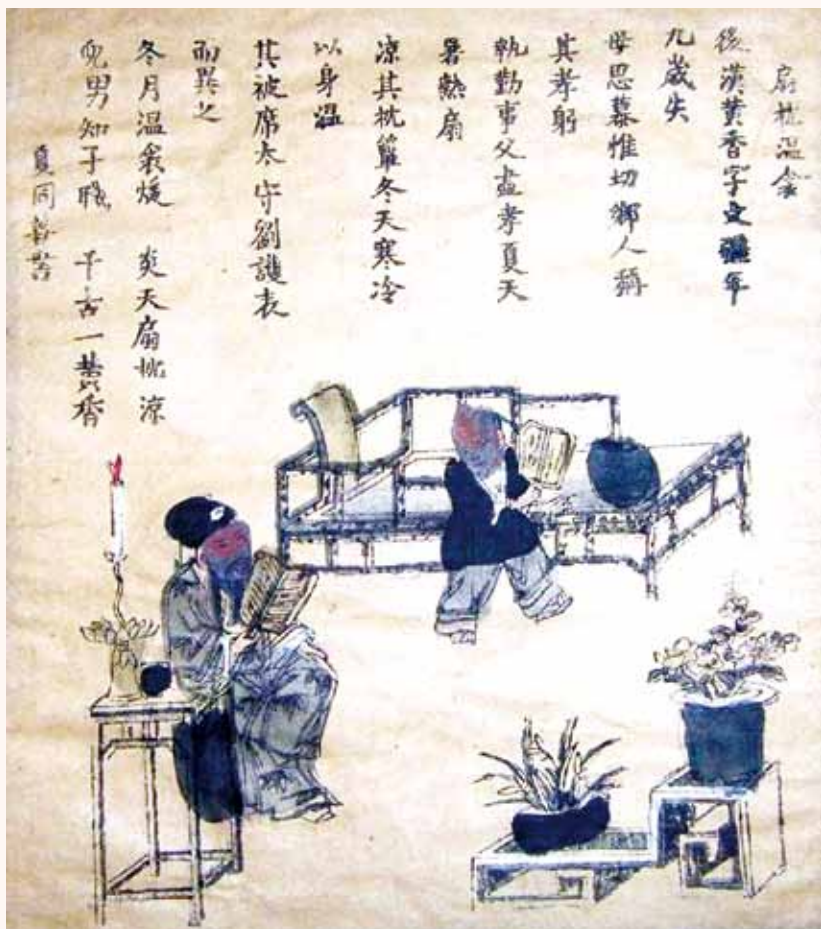 扇枕温衾
後漢黄香字文彊年
九歲失
母思慕惟切鄉人稱
其孝躬
執勤事父盡孝夏天
暑熱扇
凉其枕簟冬天寒冷
以身温
其被席太守劉護表
而異之
冬月温衾煖 炎天扇枕凉
兒男知子職 千古一黄香
夏同